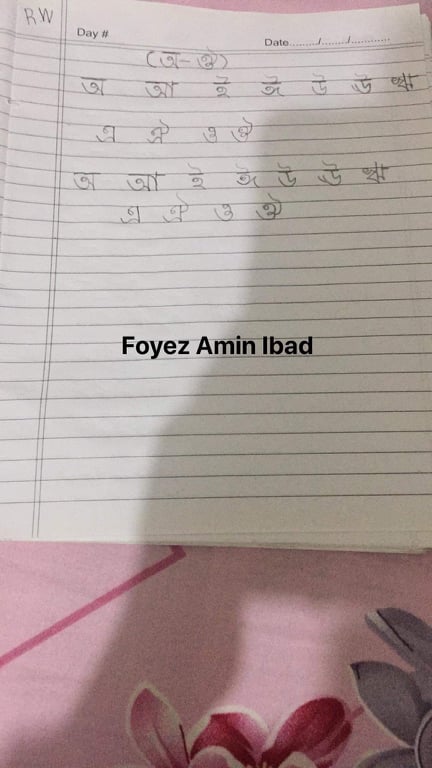 RW
Day #
Date........./......../............
(অ-ঔ)
অ আ ই ঈ উ ঊ ঋ
এ ঐ ও ঔ
অ আ ই ঈ উ ঊ ঋ
এ ঐ ও ঔ
Foyez Amin Ibad